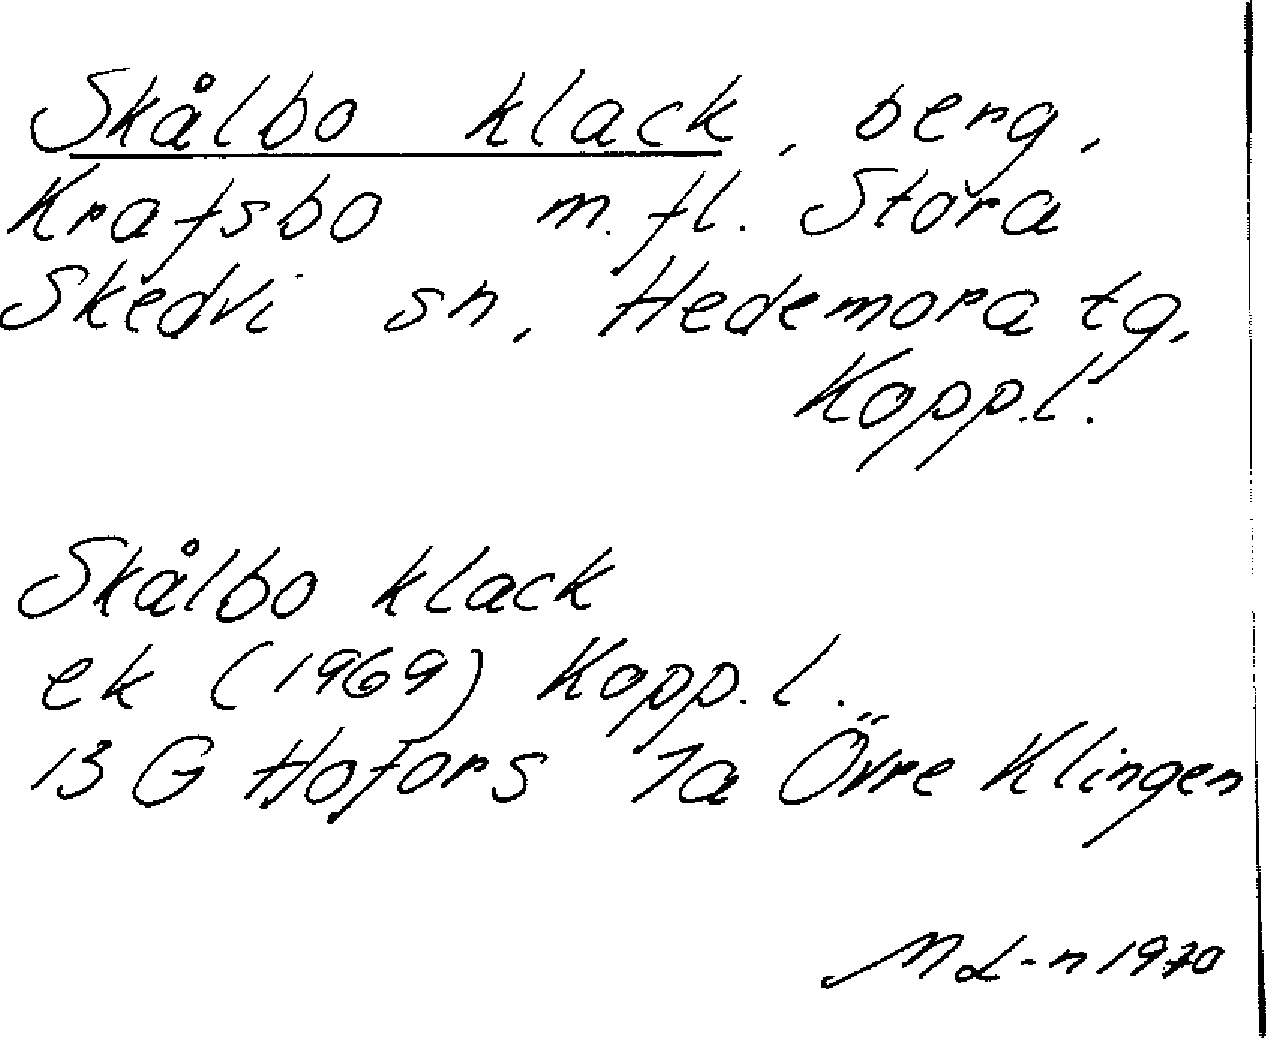 Skålbo klack, berg,
Krafsbo m.fl. Stora
Skedvi sn, Hedemora tg,
Kopp.l.
Skålbo klack
ek (1969) Kopp.l.
13 G Hofors 1a Övre Klingen
M L-n 1970